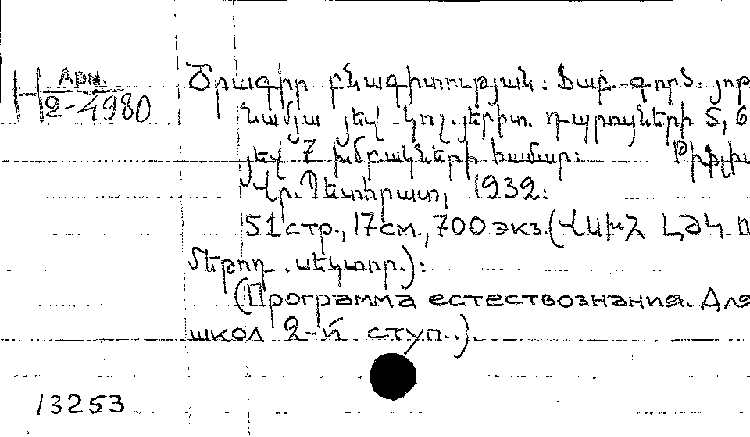 Арм.
Н 2-4980
Ծրագիր բնագիտության: Ֆաբ-գործ. յոթ
նամյա յեվ կոլ. յերիտ. դպրոցների 5, 6
յեվ 7 խմբակների համար: Թիֆլիս
Վր. Պետհրատ, 1932:
51 стр., 17 см., 700 экз. (ՎՍԽՀ ԼԺԿ
մեթոդ. սեկտոր.):
(Программа естествознания. Для
школ 2-й ступ.).
13253